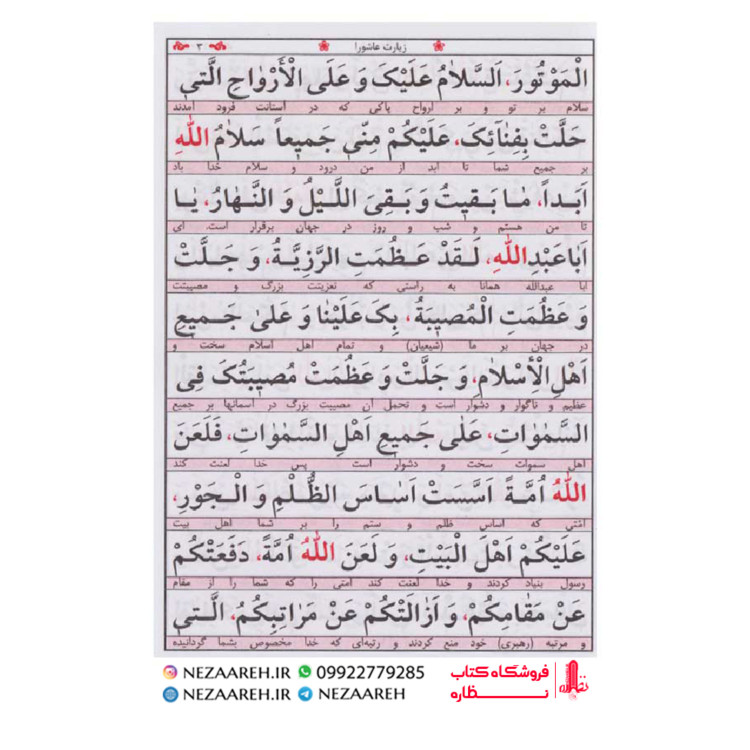 زیارت عاشورا
۳
الْمَوْتُورَ، اَلسَّلاٰمُ عَلَیْکَ وَ عَلَی الْأَرْوٰاحِ الَّتی
سلام بر تو و بر ارواح پاکی که در آستانت فرود آمدند
حَلَّتْ بِفِنٰآئِکَ، عَلَیْکُمْ مِنّی جَمیعاً سَلاٰمُ اللّٰهِ
بر جمیع شما تا ابد از من درود و سلام خدا باد
اَبَداً، مٰا بَقیتُ وَ بَقِیَ اللَّیْلُ وَ النَّهٰارُ، یٰا
تا من هستم و شب و روز در جهان برقرار است. ای
اَبٰاعَبْدِاللّٰهِ، لَقَدْ عَظُمَتِ الرَّزِیَّةُ، وَ جَلَّتْ
ابا عبدالله همانا به راستی که تعزیتت بزرگ و مصیبتت
وَ عَظُمَتِ الْمُصیبَةُ، بِکَ عَلَیْنٰا وَ عَلیٰ جَمیعِ
در جهان بر ما (شیعیان) و تمام اهل اسلام سخت و
اَهْلِ الْأِسْلاٰمِ، وَ جَلَّتْ وَ عَظُمَتْ مُصیبَتُکَ فِی
عظیم و ناگوار و دشوار است و تحمل آن مصیبت بزرگ در آسمانها بر جمیع
السَّمٰوٰاتِ، عَلٰی جَمیعِ اَهْلِ السَّمٰوٰاتِ، فَلَعَنَ
اهل سموات سخت و دشوار است پس خدا لعنت کند
اللّٰهُ اُمَّةً اَسَّسَتْ اَسٰاسَ الظُّلْمِ وَ الْجَوْرِ،
امّتی که اساس ظلم و ستم را بر شما اهل بیت
عَلَیْکُمْ اَهْلَ الْبَیْتِ، وَ لَعَنَ اللّٰهُ اُمَّةً، دَفَعَتْکُمْ
رسول بنیاد کردند و خدا لعنت کند امتی را که شما را از مقام
عَنْ مَقٰامِکُمْ، وَ اَزٰالَتْکُمْ عَنْ مَرٰاتِبِکُمُ، الَّتی
و مرتبه (رهبری) خود منع کردند و رتبه‌ای که خدا مخصوص بشما گردانیده
NEZAAREH.IR 09922779285
NEZAAREH.IR NEZAAREH
فروشگاه کتاب
نظاره